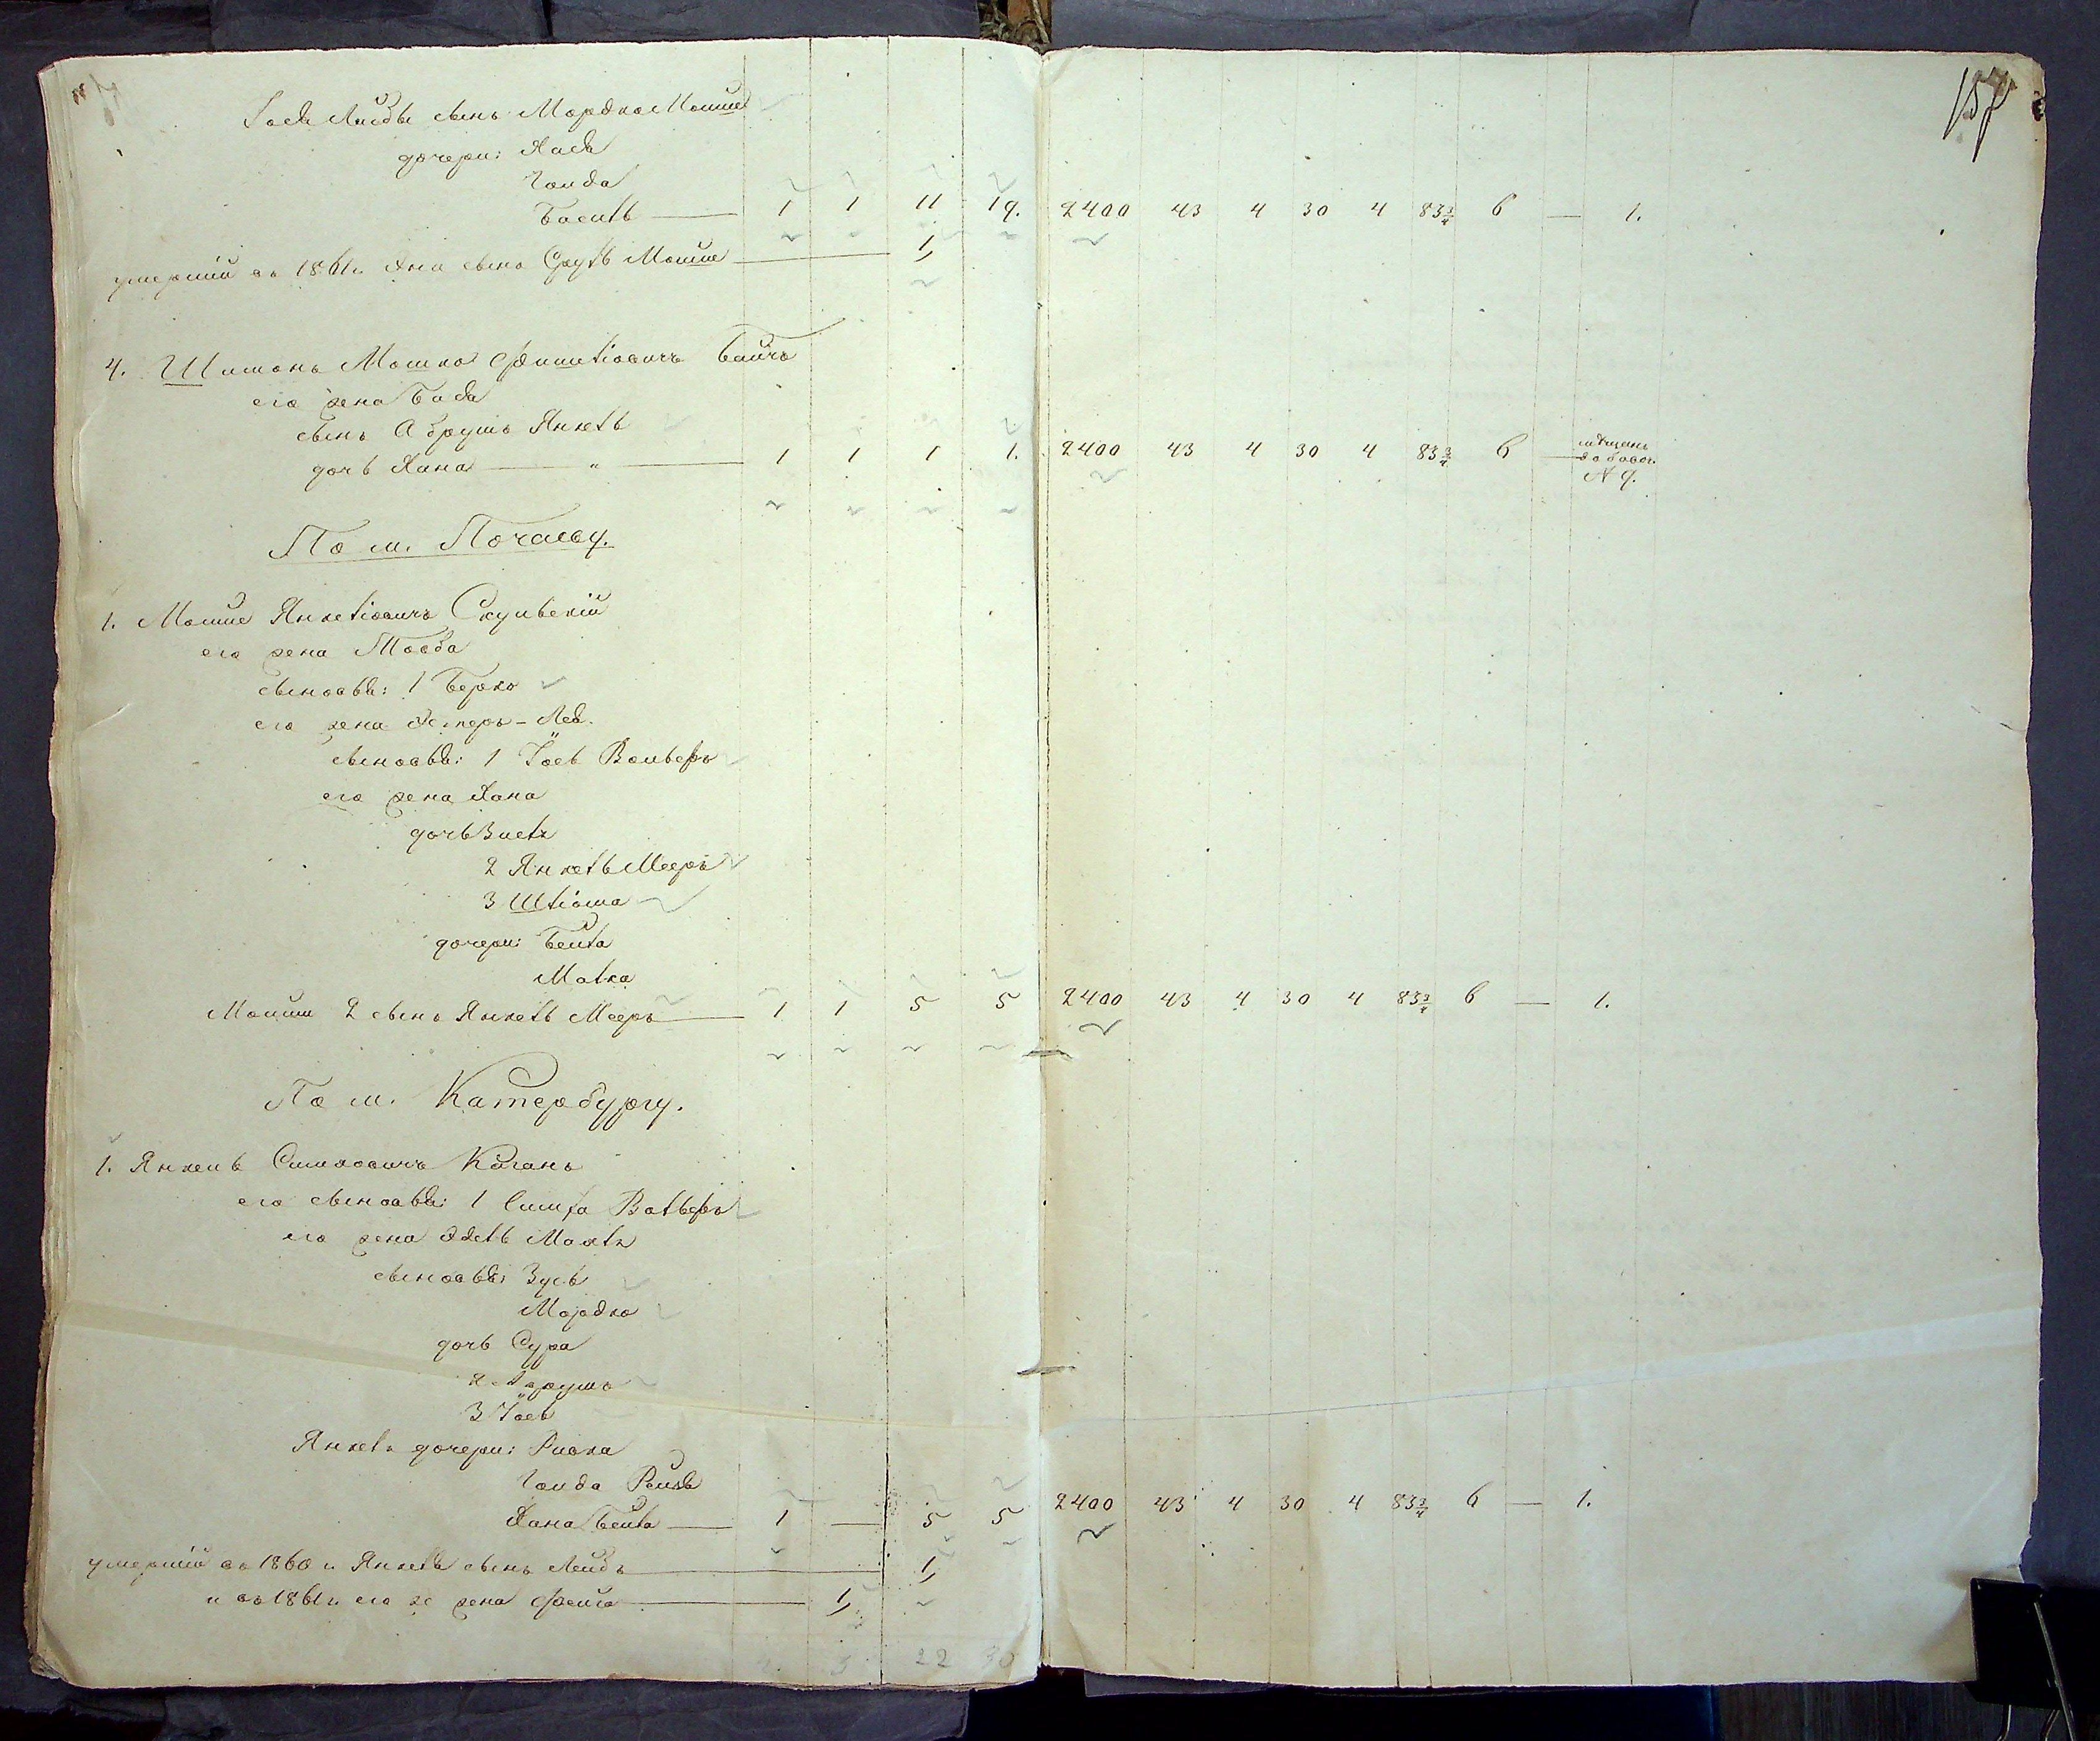 157
Іось Лейбы сынъ Мордко Мошко
дочери: Хася
Голда
Басиль — 1 1 11 19. 2400 43 4 30 4 83¾ 6 — 1.
умершій въ 1861 г. сынъ Сруль Мошко — 1,
4. Шимонъ Мошко Фишелiовичъ
его жена Бася
сынъ Абрумъ Янкель
дочь Хана — " — 1 1 1 1. 2400 43 4 30 4 83¾ 6 — мѣщанъ
добавоч.
№ 9.
По м. Почаеву.
1. Мошко Янкелiовичъ Скульскій
его жена Тоба
сыновья: 1 Берко
его жена Эстеръ-Лея.
сыновья: 1 Іось Вольфъ
его жена Хана
дочь Зисля
2 Янкель Мееръ
3 Шлiома
дочери: Бейла
Малка
Мошки 2 сынъ Янкель Мееръ — 1 1 5 5 2400 43 4 30 4 83¾ 6 — 1.
По м. Катербургу.
1. Янкель Симховичъ Каганъ
его сыновья: 1 Симха Вольфъ
его жена Эдель Махля
сыновья: Зусь
Мордко
дочь Сура
2 Аврумъ
3 Іось
Янкеля дочери: Ривка
Голда Рейзя
Хана Бейла — 1 — 5 5 2400 43 4 30 4 83¾ 6 — 1.
умершій въ 1860 г. Янкеля сынъ Лейбъ — 1,
и въ 1861 г. его же жена Фейга — 1,
3 22 30